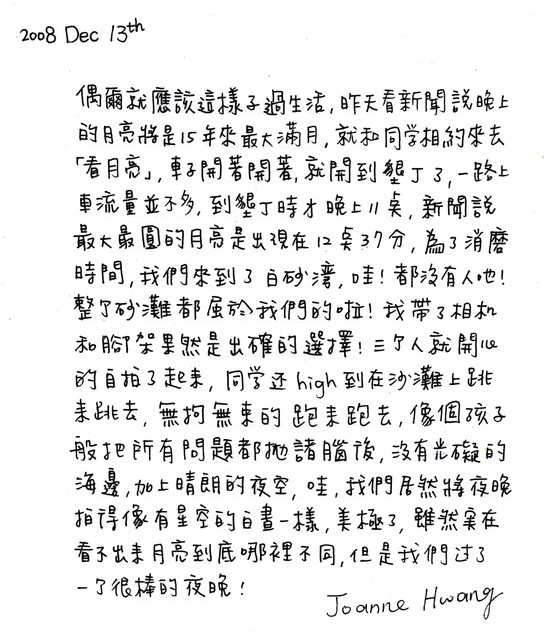 2008 Dec 13th
偶爾就應該這樣子過生活,昨天看新聞說晚上
的月亮將是15年來最大滿月,就和同学相約來去
「看月亮」,車子開著開著,就開到墾丁了,一路上
車流量並不多,到墾丁時才晚上11点,新聞說
最大最圓的月亮是出現在12点37分,為了消磨
時間,我們來到了白砂灣,哇!都沒有人吔!
整个砂灘都屬於我們的啦!我帶了相机
和腳架果然是正確的選擇!三个人就開心
的自拍了起來,同学还high到在沙灘上跳
來跳去,無拘無束的跑來跑去,像個孩子
般把所有問題都拋諸腦後,沒有光礙的
海邊,加上晴朗的夜空,哇,我們居然將夜晚
拍得像有星空的白晝一樣,美極了,雖然实在
看不出來月亮到底哪裡不同,但是我們过了
一个很棒的夜晚!
Joanne Hwang